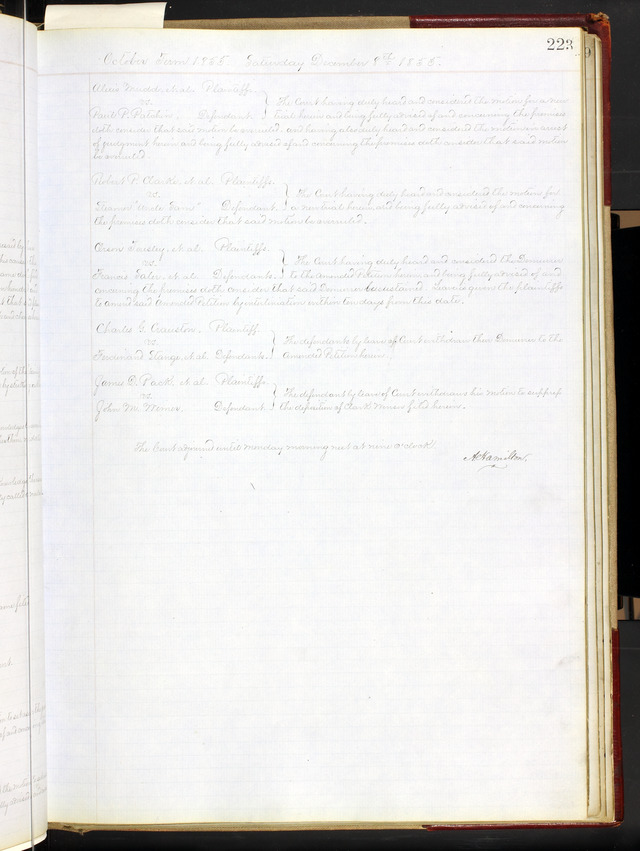 223
October Term 1855. Saturday December 8th 1855.
Alexis Mudd, et al. Plaintiffs.
vs.
Defendant.
The Court having duly heard and considered the motion for a new
trial herein and being fully advised of and concerning the premises
doth consider that said motion be overruled. and having also duly heard and considered the motion in arrest
of judgment herein and being fully advised of and concerning the premises doth consider that said motion
be overruled.
Robert P. Clarke, et al. Plaintiffs.
vs.
Defendant.
The Court having duly heard and considered the motion for
a new trial herein and being fully advised of and concerning
the premises doth consider that said motion be overruled.
Plaintiffs.
vs.
Francis et al. Defendants.
The Court having duly heard and considered the Demurrer
to the amended Petition herein and being fully advised of and
concerning the premises doth consider that said Demurrer be sustained. Leave given the plaintiffs
to amend said Amended Petition by interlineation within ten days from this date.
Charles G. Plaintiff.
vs.
Ferdinand et al. Defendants.
The defendants by leave of Court withdraw their Demurrer to the
Amended Petition herein.
James D. et al. Plaintiffs.
vs.
John M. Wimer. Defendant.
The defendant by leave of Court withdraws his motion to suppress
the deposition of filed herein.
The Court adjourned until Monday morning next at nine o'clock.
A. Hamilton.